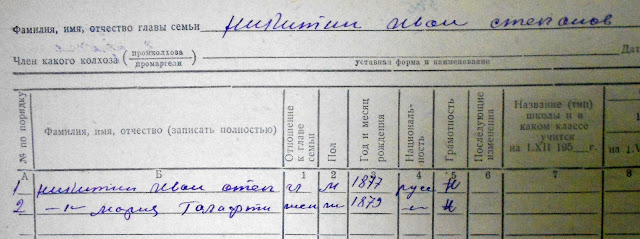 Фамилия, имя, отчество главы семьи никитин иван степанов
Член какого колхоза (промколхоза/промартели)
уставная форма и наименование
№ по порядку Фамилия, имя, отчество (записать полностью) Отношение к главе семьи Пол Год и месяц рождения Националь-ность Грамотность Последующие изменения Название (тип) школы и в каком классе учится на 1.XII 195 г.
А Б 1 2 3 4 5 6 7 8
1 никитин иван степ гл м 1877 русс н
2 —"— мария жен ж 1879 —"— н